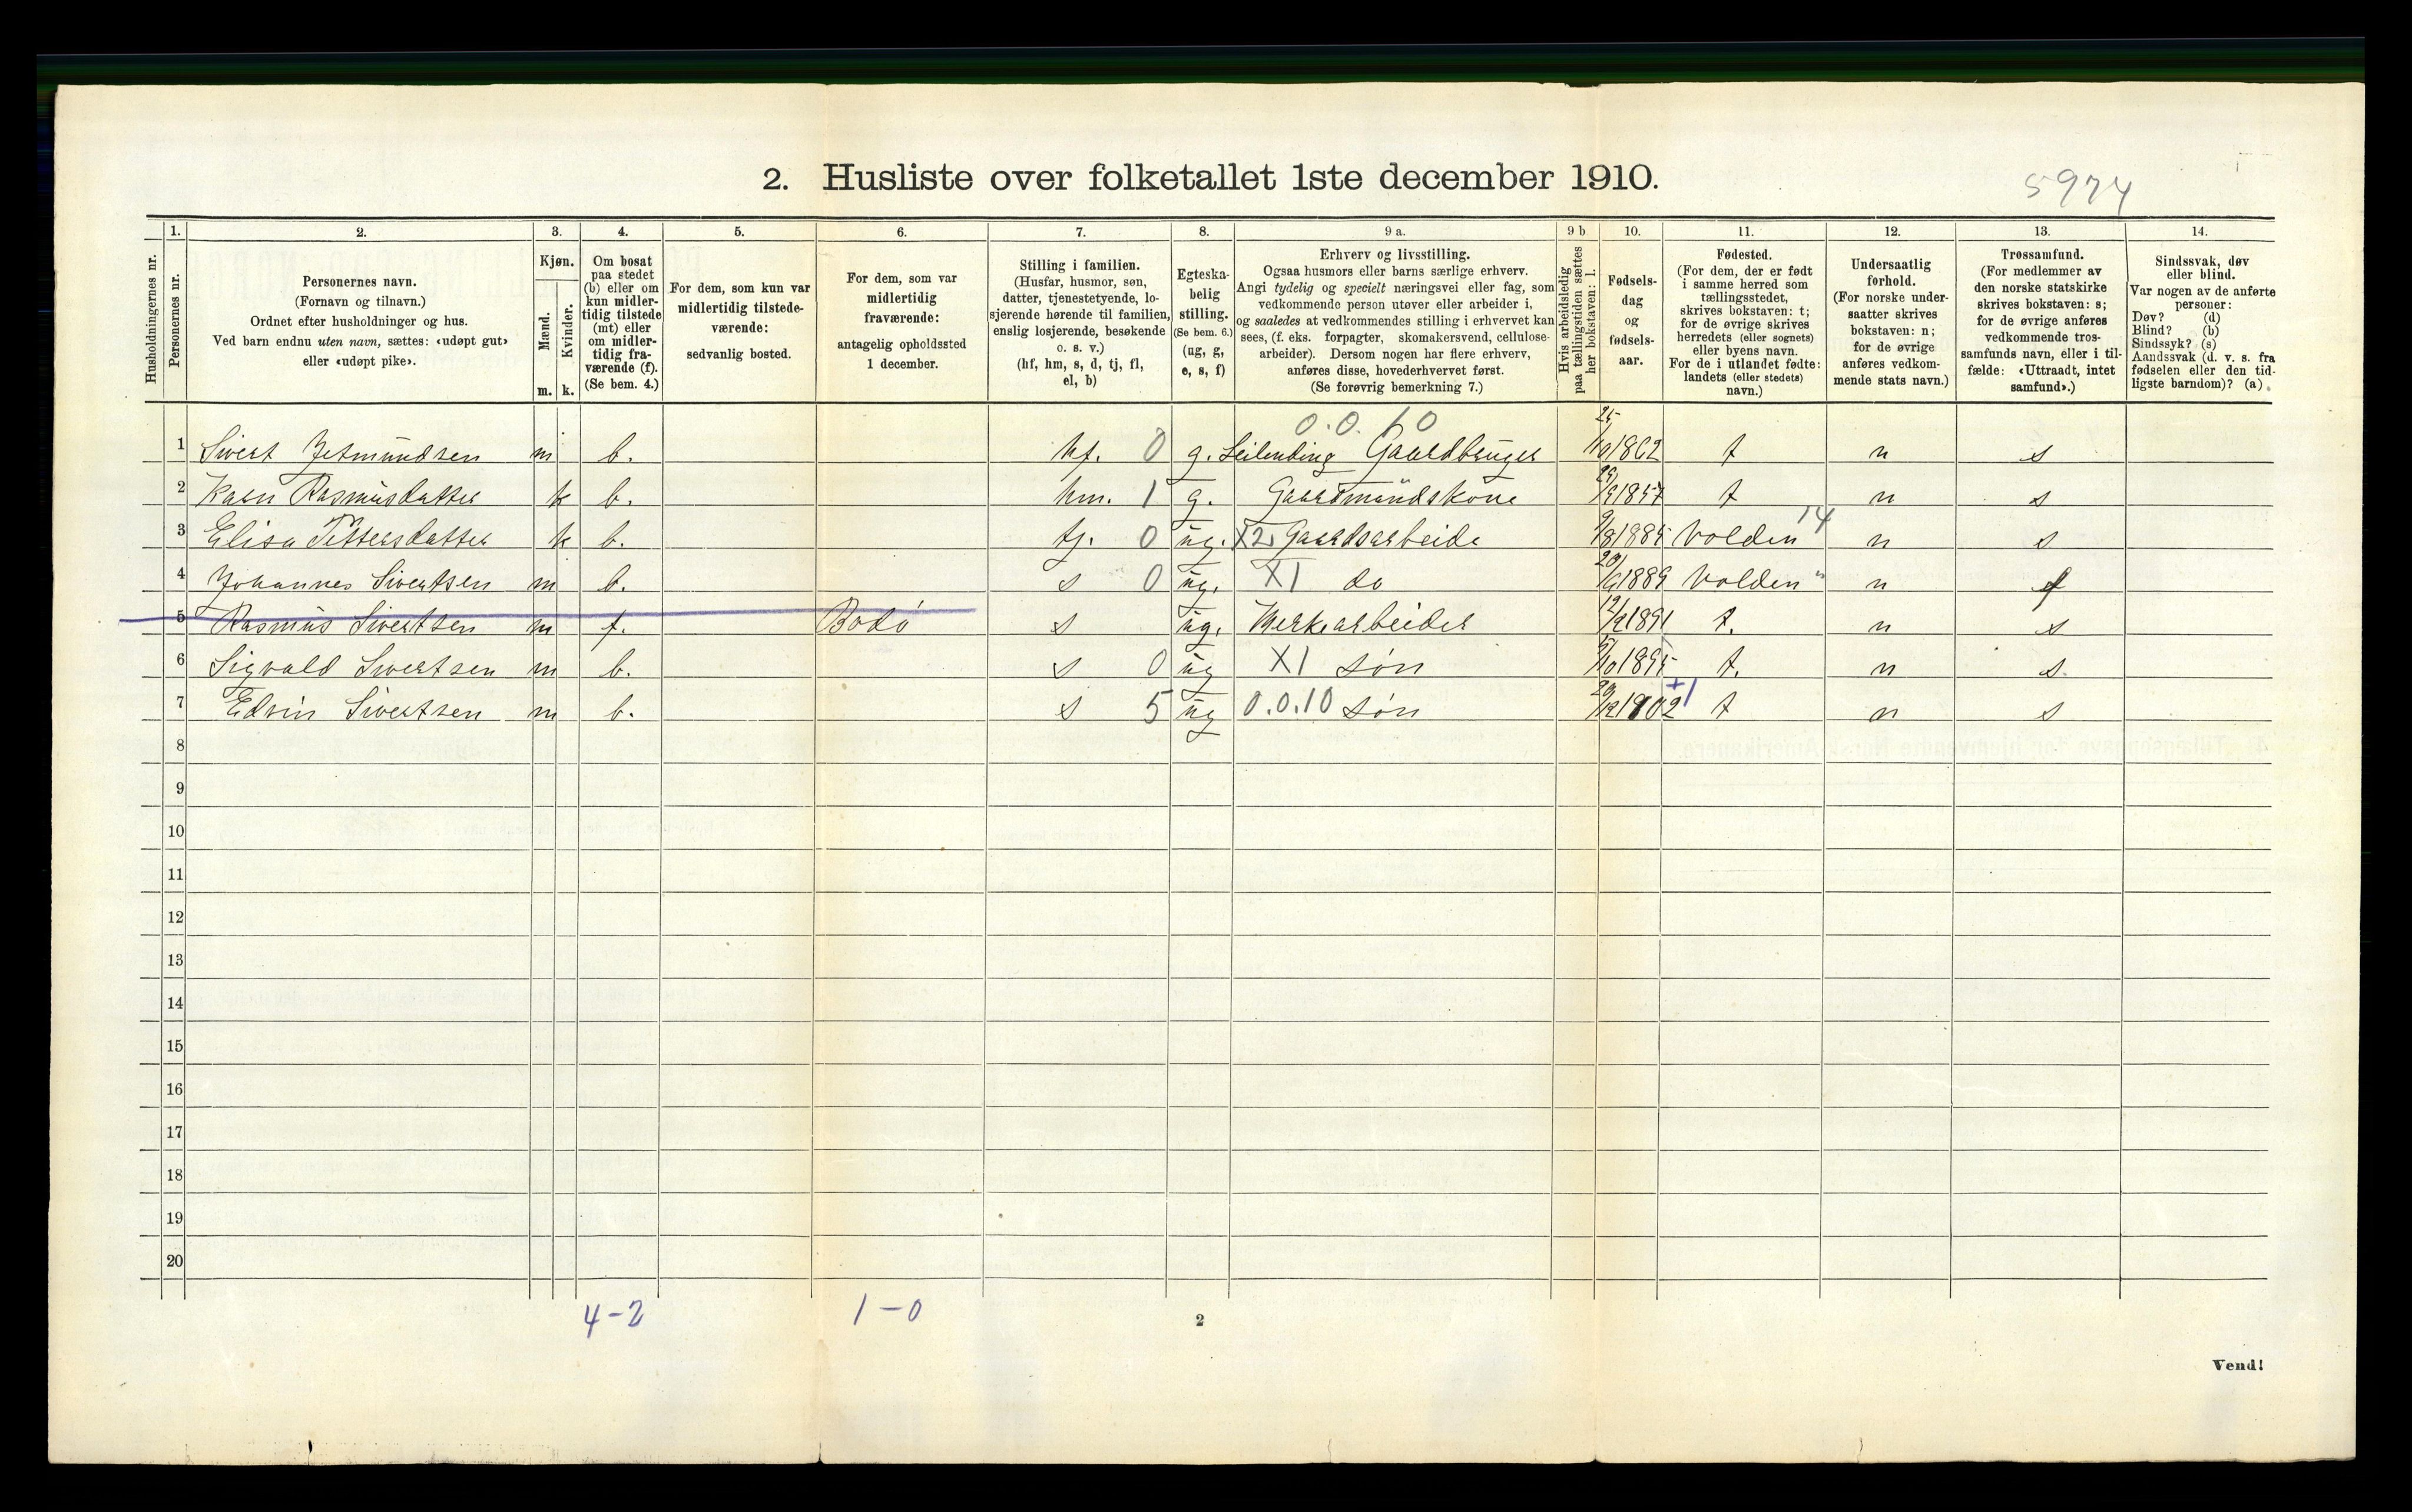 2. Husliste over folketallet 1ste december 1910.
5974
Husholdningernes nr.
1. Personernes nr.
2. Personernes navn.
(Fornavn og tilnavn.)
Ordnet efter husholdninger og hus.
Ved barn endnu uten navn, sættes: «udøpt gut»
eller «udøpt pike».
3. Kjøn.
Mænd. m.
Kvinder. k.
4. Om bosat
paa stedet
(b) eller om
kun midler-
tidig tilstede
(mt) eller
om midler-
tidig fra-
værende (f).
(Se bem. 4.)
5. For dem, som kun var
midlertidig tilstede-
værende:
sedvanlig bosted.
6. For dem, som var
midlertidig
fraværende:
antagelig opholdssted
1 december.
7. Stilling i familien.
(Husfar, husmor, søn,
datter, tjenestetyende, lo-
sjerende hørende til familien,
enslig losjerende, besøkende
o. s. v.)
(hf, hm, s, d, tj, fl,
el, b)
8. Egteska-
belig
stilling.
(Se bem. 6.)
(ug, g,
e, s, f)
9 a. Erhverv og livsstilling.
Ogsaa husmors eller barns særlige erhverv.
Angi tydelig og specielt næringsvei eller fag, som
vedkommende person utøver eller arbeider i,
og saaledes at vedkommendes stilling i erhvervet kan
sees, (f. eks. forpagter, skomakersvend, cellulose-
arbeider). Dersom nogen har flere erhverv,
anføres disse, hovederhvervet først.
(Se forøvrig bemerkning 7.)
9 b Hvis arbeidsledig
paa tællingstiden sættes
her bokstaven: l.
10. Fødsels-
dag
og
fødsels-
aar.
11. Fødested.
(For dem, der er født
i samme herred som
tællingsstedet,
skrives bokstaven: t;
for de øvrige skrives
herredets (eller sognets)
eller byens navn.
For de i utlandet fødte:
landets (eller stedets)
navn.)
12. Undersaatlig
forhold.
(For norske under-
saatter skrives
bokstaven: n;
for de øvrige
anføres vedkom-
mende stats navn.)
13. Trossamfund.
(For medlemmer av
den norske statskirke
skrives bokstaven: s;
for de øvrige anføres
vedkommende tros-
samfunds navn, eller i til-
fælde: «Uttraadt, intet
samfund».)
14. Sindssvak, døv
eller blind.
Var nogen av de anførte
personer:
Døv? (d)
Blind? (b)
Sindssyk? (s)
Aandssvak (d. v. s. fra
fødselen eller den tid-
ligste barndom)? (a).
0.0.10
1 Sivert Jetmundsen m b. hf. 0 g. Leilending Gaardbruger 25/10 1862 t n s
2 Karn Rasmusdatter k b. hm. 1 g. Gaardmandskone /9 1857 t n s
3 Elisa Pettersdatter k b. tj. 0 ug. X2 Gaardsarbeide 9/8 1885 Volden 14 n s
4 Johannes Sivertsen m b. s 0 ug. X1 do 20/6 1889 Volden " n s
5 Rasmus Sivertsen m f. Bodö s ug. Merkearbeider 12/2 1891 t. n s
6 Sigvald Sivertsen m b. s 0 ug X1 søn 5/10 1895 t. n s.
7 Edvin Sivertsen m b. s 5 ug 0.0.10 søn 20/12 1902 +1 t n s
8
9
10
11
12
13
14
15
16
17
18
19
20
4-2 1-0
2
Vend!